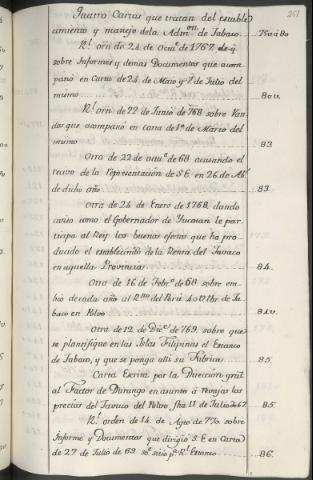 261
Quatro Cartas que tratan del estable
cimiento y manejo dela Adm.on de Tabaco. 75 á 80
R.l orn de 24 de Octu.e de 1767.
sobre Informes y demas Documentos que acom
pañó en Carta de 24 de Maio y 7 de Julio del
mismo 80v.
R.l orn de 22 de Junio de 768 sobre Van
dos que acompañó en carta de 1.o de Marzo del
mismo 83.
Otra de 22 de octu.e de 68 acusando el
recivo de la Representacion de S E en 26 de Ab.l
de dicho año 83.
Otra de 24 de Enero de 1768, dando
aviso como el Governador de Yucatan le par
ticipa al Rey los buenos efectos que ha pro
ducido el establecim.to de la Renta del Tavaco
en aquella Provincia 84.
Otra de 16 de Febr.o de 68 sobre em
bio de cada año al R.no del Perú de Ta
baco en Polvo 84v.
Otra de 12 de Dic.e de 769. sobre que
se planifique en las Islas Filipinas el Estanco
de Tabaco, y que se ponga alli su Fabrica 85.
Carta Escrita por la Direccion gral
al Factor de Durango en asunto á revajas los
precios del Tavaco del Polvo, fha 11 de Julio de 67. 85.
R.l orden de 14 de Ago de 770. sobre
Informe y Documentos que dirigió S. E en Carta
de 27 de Julio de 69 Estanco 86.